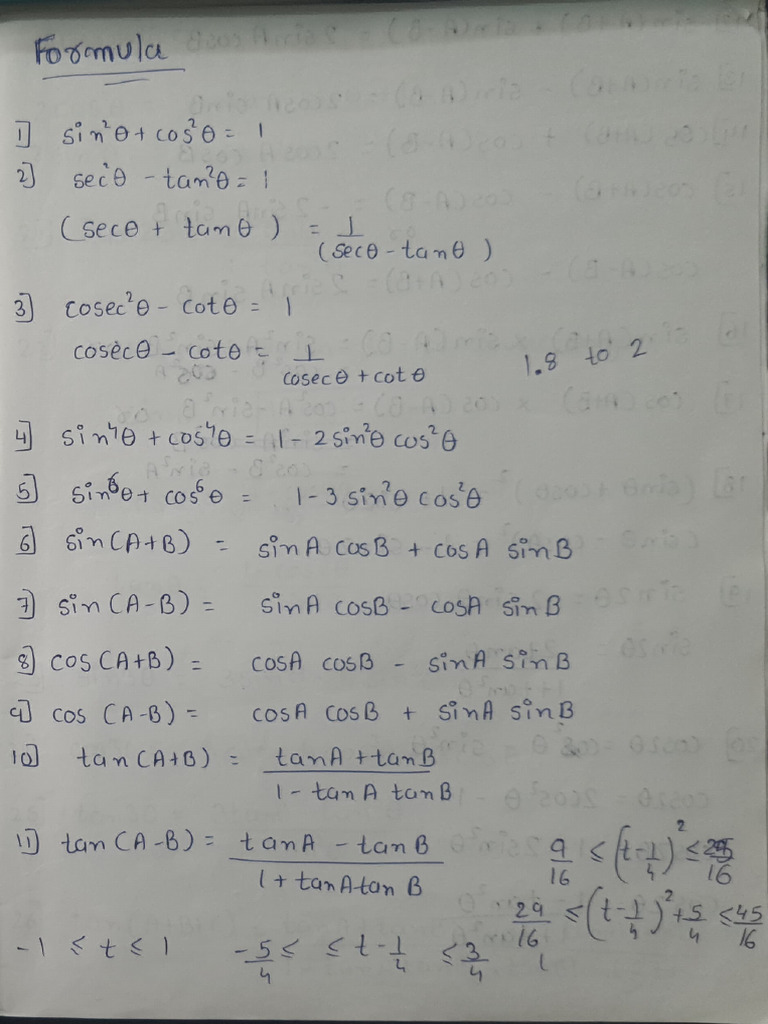 Formula
1] sin²θ + cos²θ = 1
2] sec²θ - tan²θ = 1
(secθ + tanθ) = 1/(secθ - tanθ)
3] cosec²θ - cotθ = 1
cosecθ - cotθ = 1/cosecθ + cotθ
1.8 to 2
4] sin⁴θ + cos⁴θ = 1 - 2 sin²θ cos²θ
5] sin⁶θ + cos⁶θ = 1 - 3 sin²θ cos²θ
6] sin(A+B) = sinA cosB + cosA sinB
7] sin(A-B) = sinA cosB - cosA sinB
8] cos(A+B) = cosA cosB - sinA sinB
9] cos(A-B) = cosA cosB + sinA sinB
10] tan(A+B) = tanA + tanB / 1 - tanA tanB
11] tan(A-B) = tanA - tanB / 1 + tanA tanB
9/16 ≤ (t - 1/4)² ≤ 25/16
29/16 ≤ (t - 1/4)² + 5/4 ≤ 45/16
-1 ≤ t ≤ 1 -5/4 ≤ ≤ t - 1/4 ≤ 3/4